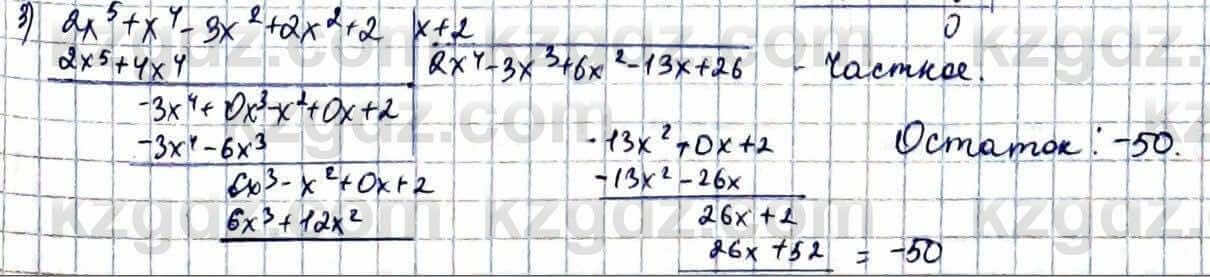 3) 2x⁵+x⁴-3x²+2x²+2 | x+2
2x⁵+4x⁴ | 2x⁴-3x³+6x²-13x+26 - Частное.
0
-3x⁴+0x³-x²+0x+2
-3x⁴-6x³
6x³-x²+0x+2
6x³+12x²
-13x²+0x+2
-13x²-26x
26x+2
26x+52 = -50
Остаток: -50.
kzgdz.com